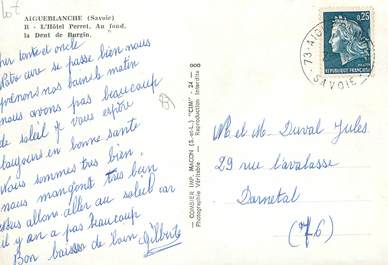 AIGUEBLANCHE (Savoie)
B - L'Hôtel Perret. Au fond,
la Dent de Burgin.
Cher tante et oncle
Notre cure se passe bien nous
prenons nos bains le matin
nous avons pas beaucoup
de soleil j vous espère
toujours en bonne santé
Nous sommes très bien,
nous mangeons très bien
nous allons aller au soleil car
il y an a pas beaucoup
Bon baiser de loin Gilberte
COMBIER IMP. MACON (S.-et-L.) "CIM" - 24 - 008
Photographie Véritable - Reproduction Interdite
0,25
REPUBLIQUE FRANCAISE
73-AIG
SAVOIE
M. et M- Duval Jules
29 rue Lavalasse
Darnetal
(76)